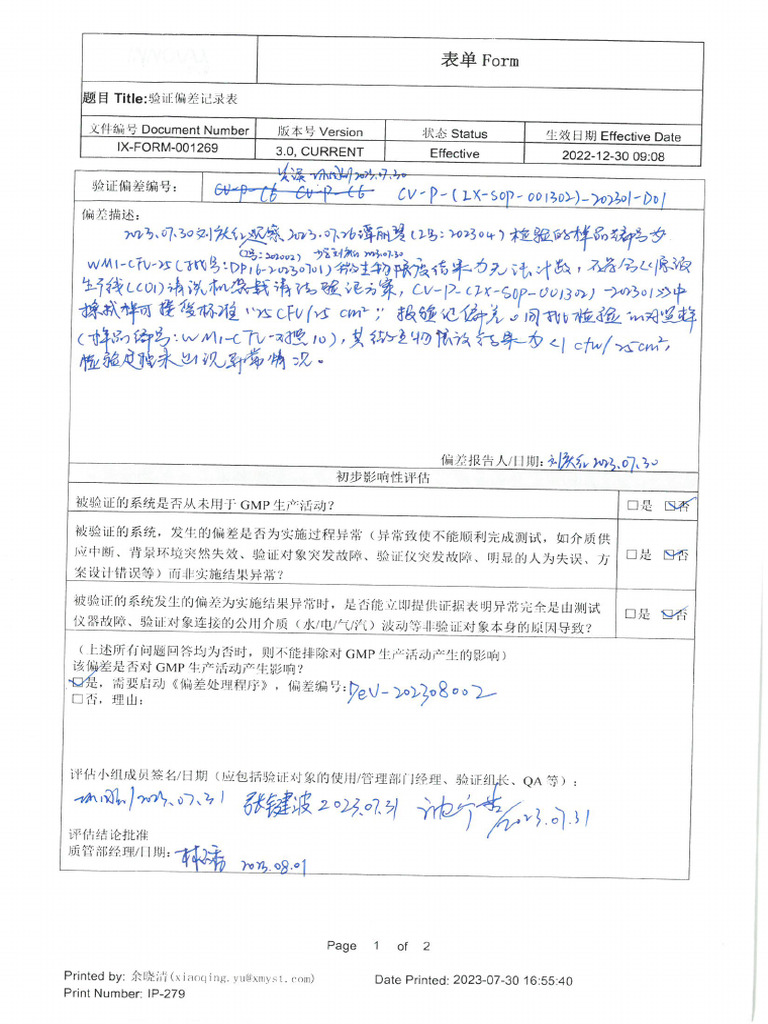 表单 Form
题目 Title:验证偏差记录表
文件编号 Document Number 版本号 Version 状态 Status 生效日期 Effective Date
IX-FORM-001269 3.0, CURRENT Effective 2022-12-30 09:08
2023.07.30
验证偏差编号: CV-P-C6 CV-P-C6 CV-P-(IX-SOP-001302)-202301-D01
偏差描述:
2023.07.30刘庆红观察2023.07.26谭丽琴(工号:202304)检验的样品编号为
(工号:202002) 2023.07.30
WM1-CFU-25(批号:DP16-20230701)微生物限度结果为无法计数,不符合《原液
生产线(C01)清洗机装载清洁验证方案,CV-P-(IX-SOP-001302)-202301》中
擦拭样可接受标准“≤25 CFU/25 cm²”,报验证偏差。同批检验的对照样
(样品编号:WM1-CFU-对照10),其微生物限度结果为<1 cfu/25cm²,
检验过程未出现异常情况。
偏差报告人/日期:刘庆红2023.07.30
初步影响性评估
被验证的系统是否从未用于 GMP 生产活动? □是 ☑否
被验证的系统,发生的偏差是否为实施过程异常(异常致使不能顺利完成测试,如介质供
应中断、背景环境突然失效、验证对象突发故障、验证仪突发故障、明显的人为失误、方 □是 ☑否
案设计错误等)而非实施结果异常?
被验证的系统发生的偏差为实施结果异常时,是否能立即提供证据表明异常完全是由测试
仪器故障、验证对象连接的公用介质(水/电/气/汽)波动等非验证对象本身的原因导致? □是 ☑否
(上述所有问题回答均为否时,则不能排除对 GMP 生产活动产生的影响)
该偏差是否对 GMP 生产活动产生影响?
☑是,需要启动《偏差处理程序》,偏差编号:Dev-202308002
□否,理由:
评估小组成员签名/日期(应包括验证对象的使用/管理部门经理、验证组长、QA 等):
/2023.07.31 张键波 2023.07.31 /2023.07.31
评估结论批准
质管部经理/日期: 2023.08.01
Page 1 of 2
Printed by: 余晓清(xiaoqing.yu@xmyst.com) Date Printed: 2023-07-30 16:55:40
Print Number: IP-279